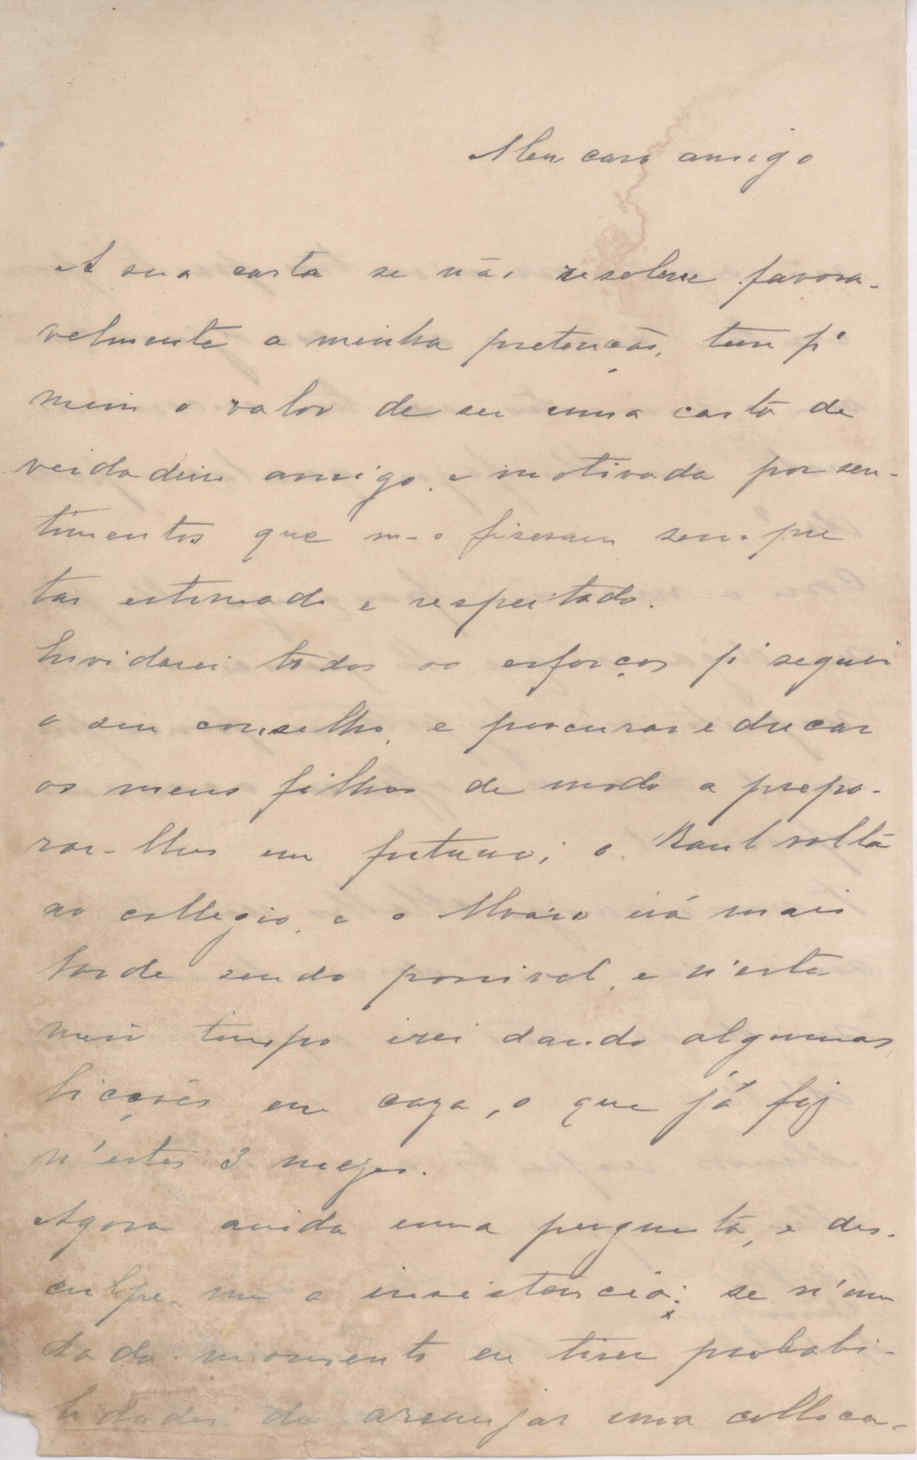 Meu caro amigo
A sua carta se não resolve favora-
velmente a minha pretenção, tem pª
mim o valor de ser uma carta de
verdadeiro amigo, e motivada por sen-
timentos que m-o fizeram sempre
tão estimado e respeitado.
Envidarei todos os esforços pª seguir
o seu conselho, e procurar educar
os meus filhos de modo a prepa-
rar-lhes um futuro; o Raul volta
ao collegio, e o Alvaro irá mais
tarde sendo possivel, e n'este
meio tempo irei dando algumas
licções em caza, o que já fiz
n'estes 3 mezes.
Agora ainda uma pergunta, e des-
culpe-me a insistencia; se n'um
dado momento eu tiver probabi-
lidades de arranjar uma colloca-